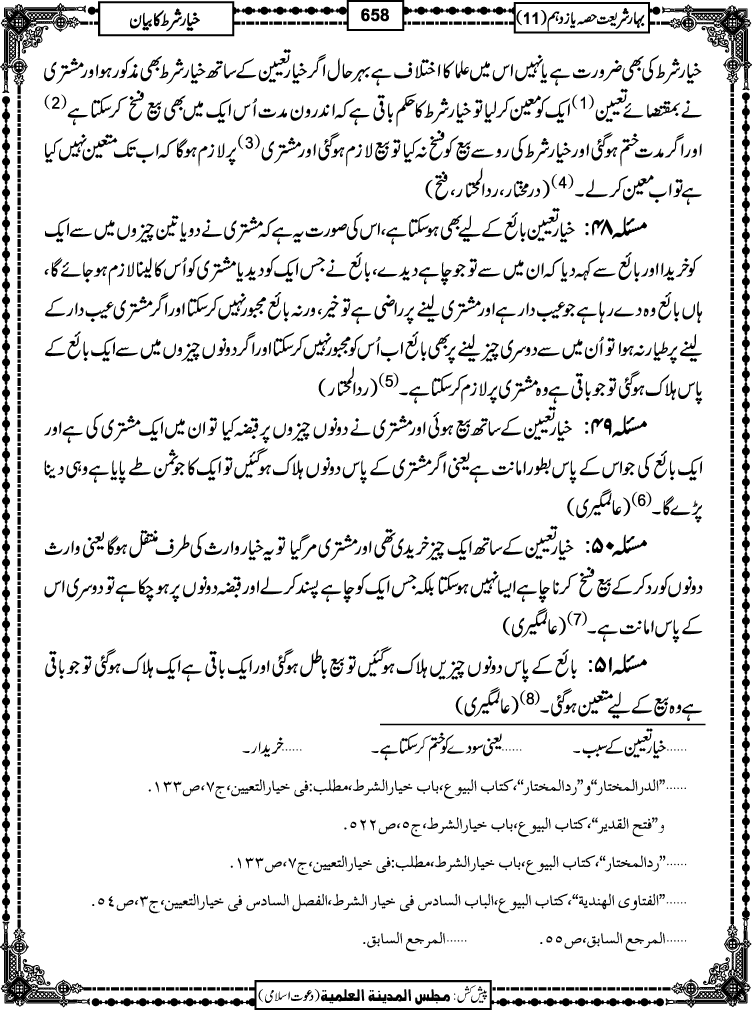 بہارِشریعت حصہ یازدہم (11)
658
خیار شرط کا بیان
خیار شرط کی بھی ضرورت ہے یا نہیں اس میں علما کا اختلاف ہے بہر حال اگر خیار تعیین کے ساتھ خیار شرط بھی مذکور ہوا اور مشتری
نے بمقتضائے تعیین (1) ایک کو معین کرلیا تو خیار شرط کا حکم باقی ہے کہ اندرون مدت اُس ایک میں بھی بیع فسخ کرسکتا ہے (2)
اور اگر مدت ختم ہوگئی اور خیار شرط کی رو سے بیع کو فسخ نہ کیا تو بیع لازم ہوگئی اور مشتری (3) پر لازم ہوگا کہ اب تک متعین نہیں کیا
ہے تو اب معین کرلے۔ (4) (درمختار، ردالمحتار، فتح)
مسئلہ ۴۸: خیار تعیین بائع کے لیے بھی ہوسکتا ہے، اس کی صورت یہ ہے کہ مشتری نے دو یا تین چیزوں میں سے ایک
کو خریدا اور بائع سے کہہ دیا کہ ان میں سے تو جو چاہے دیدے، بائع نے جس ایک کو دیدیا مشتری کو اُس کا لینا لازم ہوجائے گا،
ہاں بائع وہ دے رہا ہے جو عیب دار ہے اور مشتری لینے پر راضی ہے تو خیر، ورنہ بائع مجبور نہیں کرسکتا اور اگر مشتری عیب دار کے
لینے پر طیار نہ ہوا تو اُن میں سے دوسری چیز لینے پر بھی بائع اب اُس کو مجبور نہیں کرسکتا اور اگر دونوں چیزوں میں سے ایک بائع کے
پاس ہلاک ہوگئی تو جو باقی ہے وہ مشتری پر لازم کرسکتا ہے۔ (5) (ردالمحتار)
مسئلہ ۴۹: خیار تعیین کے ساتھ بیع ہوئی اور مشتری نے دونوں چیزوں پر قبضہ کیا تو ان میں ایک مشتری کی ہے اور
ایک بائع کی جو اس کے پاس بطور امانت ہے یعنی اگر مشتری کے پاس دونوں ہلاک ہوگئیں تو ایک کا جو ثمن طے پایا ہے وہی دینا
پڑے گا۔ (6) (عالمگیری)
مسئلہ ۵۰: خیار تعیین کے ساتھ ایک چیز خریدی تھی اور مشتری مر گیا تو یہ خیار وارث کی طرف منتقل ہوگا یعنی وارث
دونوں کو رد کر کے بیع فسخ کرنا چاہے ایسا نہیں ہوسکتا بلکہ جس ایک کو چاہے پسند کرلے اور قبضہ دونوں پر ہوچکا ہے تو دوسری اس
کے پاس امانت ہے۔ (7) (عالمگیری)
مسئلہ ۵۱: بائع کے پاس دونوں چیزیں ہلاک ہوگئیں تو بیع باطل ہوگئی اور ایک باقی ہے ایک ہلاک ہوگئی تو جو باقی
ہے وہ بیع کے لیے متعین ہوگئی۔ (8) (عالمگیری)
......خیار تعیین کے سبب۔ ......یعنی سودے کو ختم کرسکتا ہے۔ ......خریدار۔
......”الدرالمختار“و”ردالمختار“،کتاب البیوع،باب خیارالشرط،مطلب:فی خیارالتعیین،ج۷،ص۱۳۳.
و”فتح القدیر“،کتاب البیوع،باب خیارالشرط،ج۵،ص۵۲۲.
......”ردالمحتار“،کتاب البیوع،باب خیارالشرط،مطلب:فی خیارالتعیین،ج۷،ص۱۳۳.
......”الفتاوی الهندیة“،کتاب البیوع،الباب السادس فی خیار الشرط،الفصل السادس فی خیارالتعیین،ج۳،ص۵۴.
......المرجع السابق،ص۵۵. ......المرجع السابق.
پیش کش: مجلس المدینة العلمیة (دعوت اسلامی)